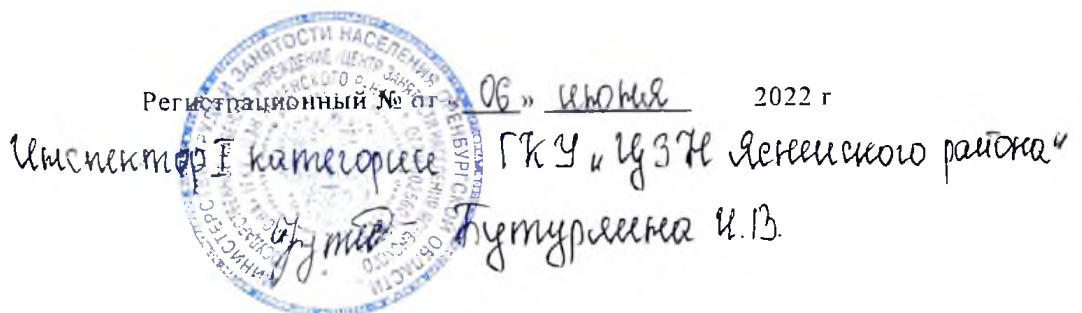 Регистрационный № от 06 » июня 2022 г
Инспектор I категории ГКУ „ЦЗН Ясненского района“
Бутурлина И.В.
ЗАНЯТОСТИ НАСЕЛЕНИЯ ОРЕНБУРГСКОЙ ОБЛАСТИ